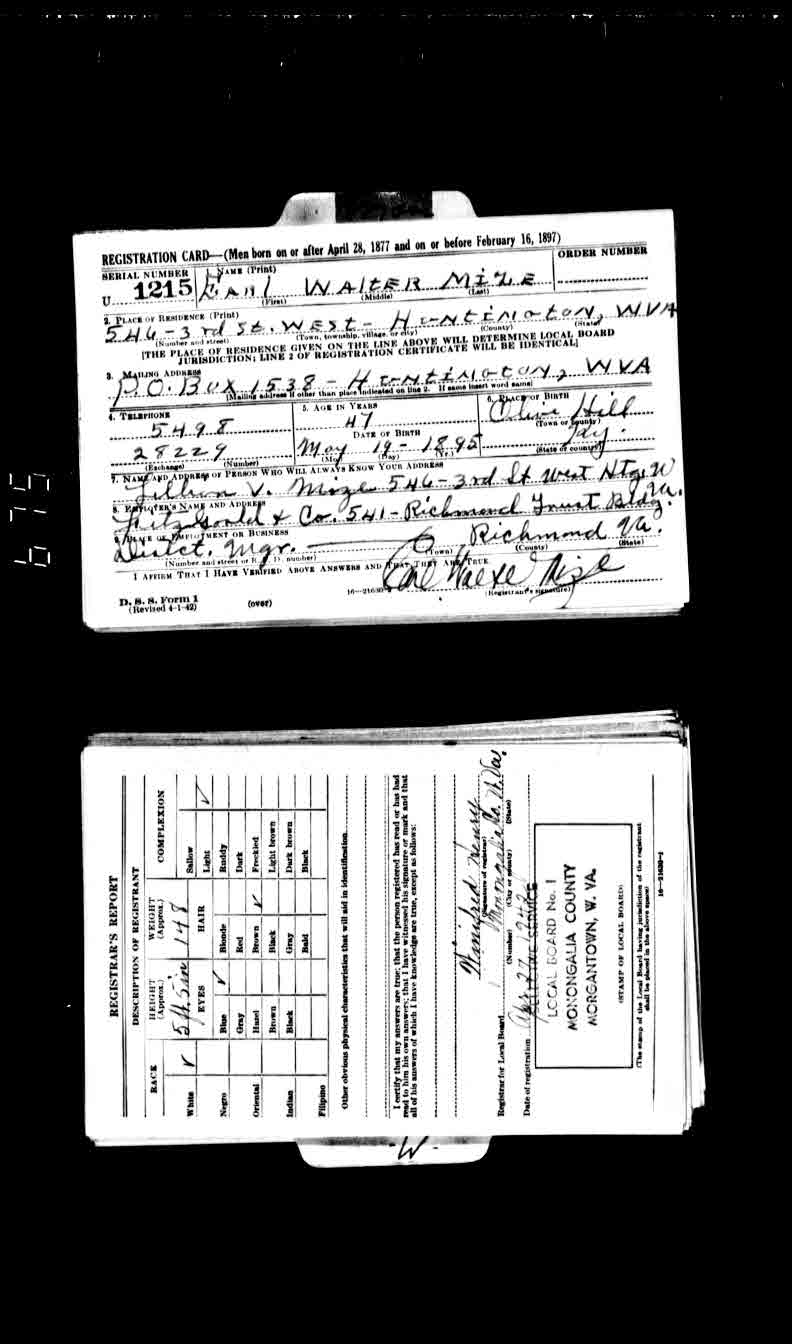 REGISTRATION CARD—(Men born on or after April 28, 1877 and on or before February 16, 1897)
SERIAL NUMBER
1. NAME (Print)
ORDER NUMBER
U 1215
WALTER MIZE
(First) (Middle) (Last)
2. PLACE OF RESIDENCE (Print)
546-3rd St. WEST- HUNTINGTON, WVA
(Number and street) (Town, township, village, or city) (County) (State)
[THE PLACE OF RESIDENCE GIVEN ON THE LINE ABOVE WILL DETERMINE LOCAL BOARD
JURISDICTION; LINE 2 OF REGISTRATION CERTIFICATE WILL BE IDENTICAL]
3. MAILING ADDRESS
P.O. Box 1538 - HUNTINGTON, WVA
[Mailing address if other than place indicated on line 2. If same insert word same]
4. TELEPHONE
5. AGE IN YEARS
6. PLACE OF BIRTH
5498
47
Olive Hill
(Town or county)
DATE OF BIRTH
28229
May 19- 1895
Ky.
(Exchange) (Number)
(Mo.) (Day) (Yr.)
(State or country)
7. NAME AND ADDRESS OF PERSON WHO WILL ALWAYS KNOW YOUR ADDRESS
Lillian V. Mize 546-3rd St West Htg. W Va.
8. EMPLOYER'S NAME AND ADDRESS
& Co. 541-Richmond Trust Bldg.
9. PLACE OF EMPLOYMENT OR BUSINESS
Distct. Mgr. Richmond Va.
(Number and street or R. F. D. number) (Town) (County) (State)
I AFFIRM THAT I HAVE VERIFIED ABOVE ANSWERS AND THAT THEY ARE TRUE.
Mize
D. S. S. Form 1
(Revised 4-1-42)
(over)
16—21630-2
(Registrant's signature)
675
REGISTRAR'S REPORT
DESCRIPTION OF REGISTRANT
RACE
HEIGHT (Approx.)
WEIGHT (Approx.)
COMPLEXION
White ✓
5ft 5in
148
Sallow
EYES
HAIR
Light ✓
Negro
Blue ✓
Blonde
Ruddy
Gray
Red
Dark
Oriental
Hazel
Brown ✓
Freckled
Brown
Black
Light brown
Indian
Black
Gray
Dark brown
Bald
Black
Filipino
Other obvious physical characteristics that will aid in identification
I certify that my answers are true; that the person registered has read or has had
read to him his own answers; that I have witnessed his signature or mark and that
all of his answers of which I have knowledge are true, except as follows:
Winifred Henry
(Signature of registrar)
Registrar for Local Board Monongalia Co. W. Va.
(Number) (City or county) (State)
Date of registration Apr 27, 1942
SELECTIVE SERVICE
LOCAL BOARD No. 1
MONONGALIA COUNTY
MORGANTOWN, W. VA.
(STAMP OF LOCAL BOARD)
(The stamp of the Local Board having jurisdiction of the registrant
shall be placed in the above space)
16—21630-1
W